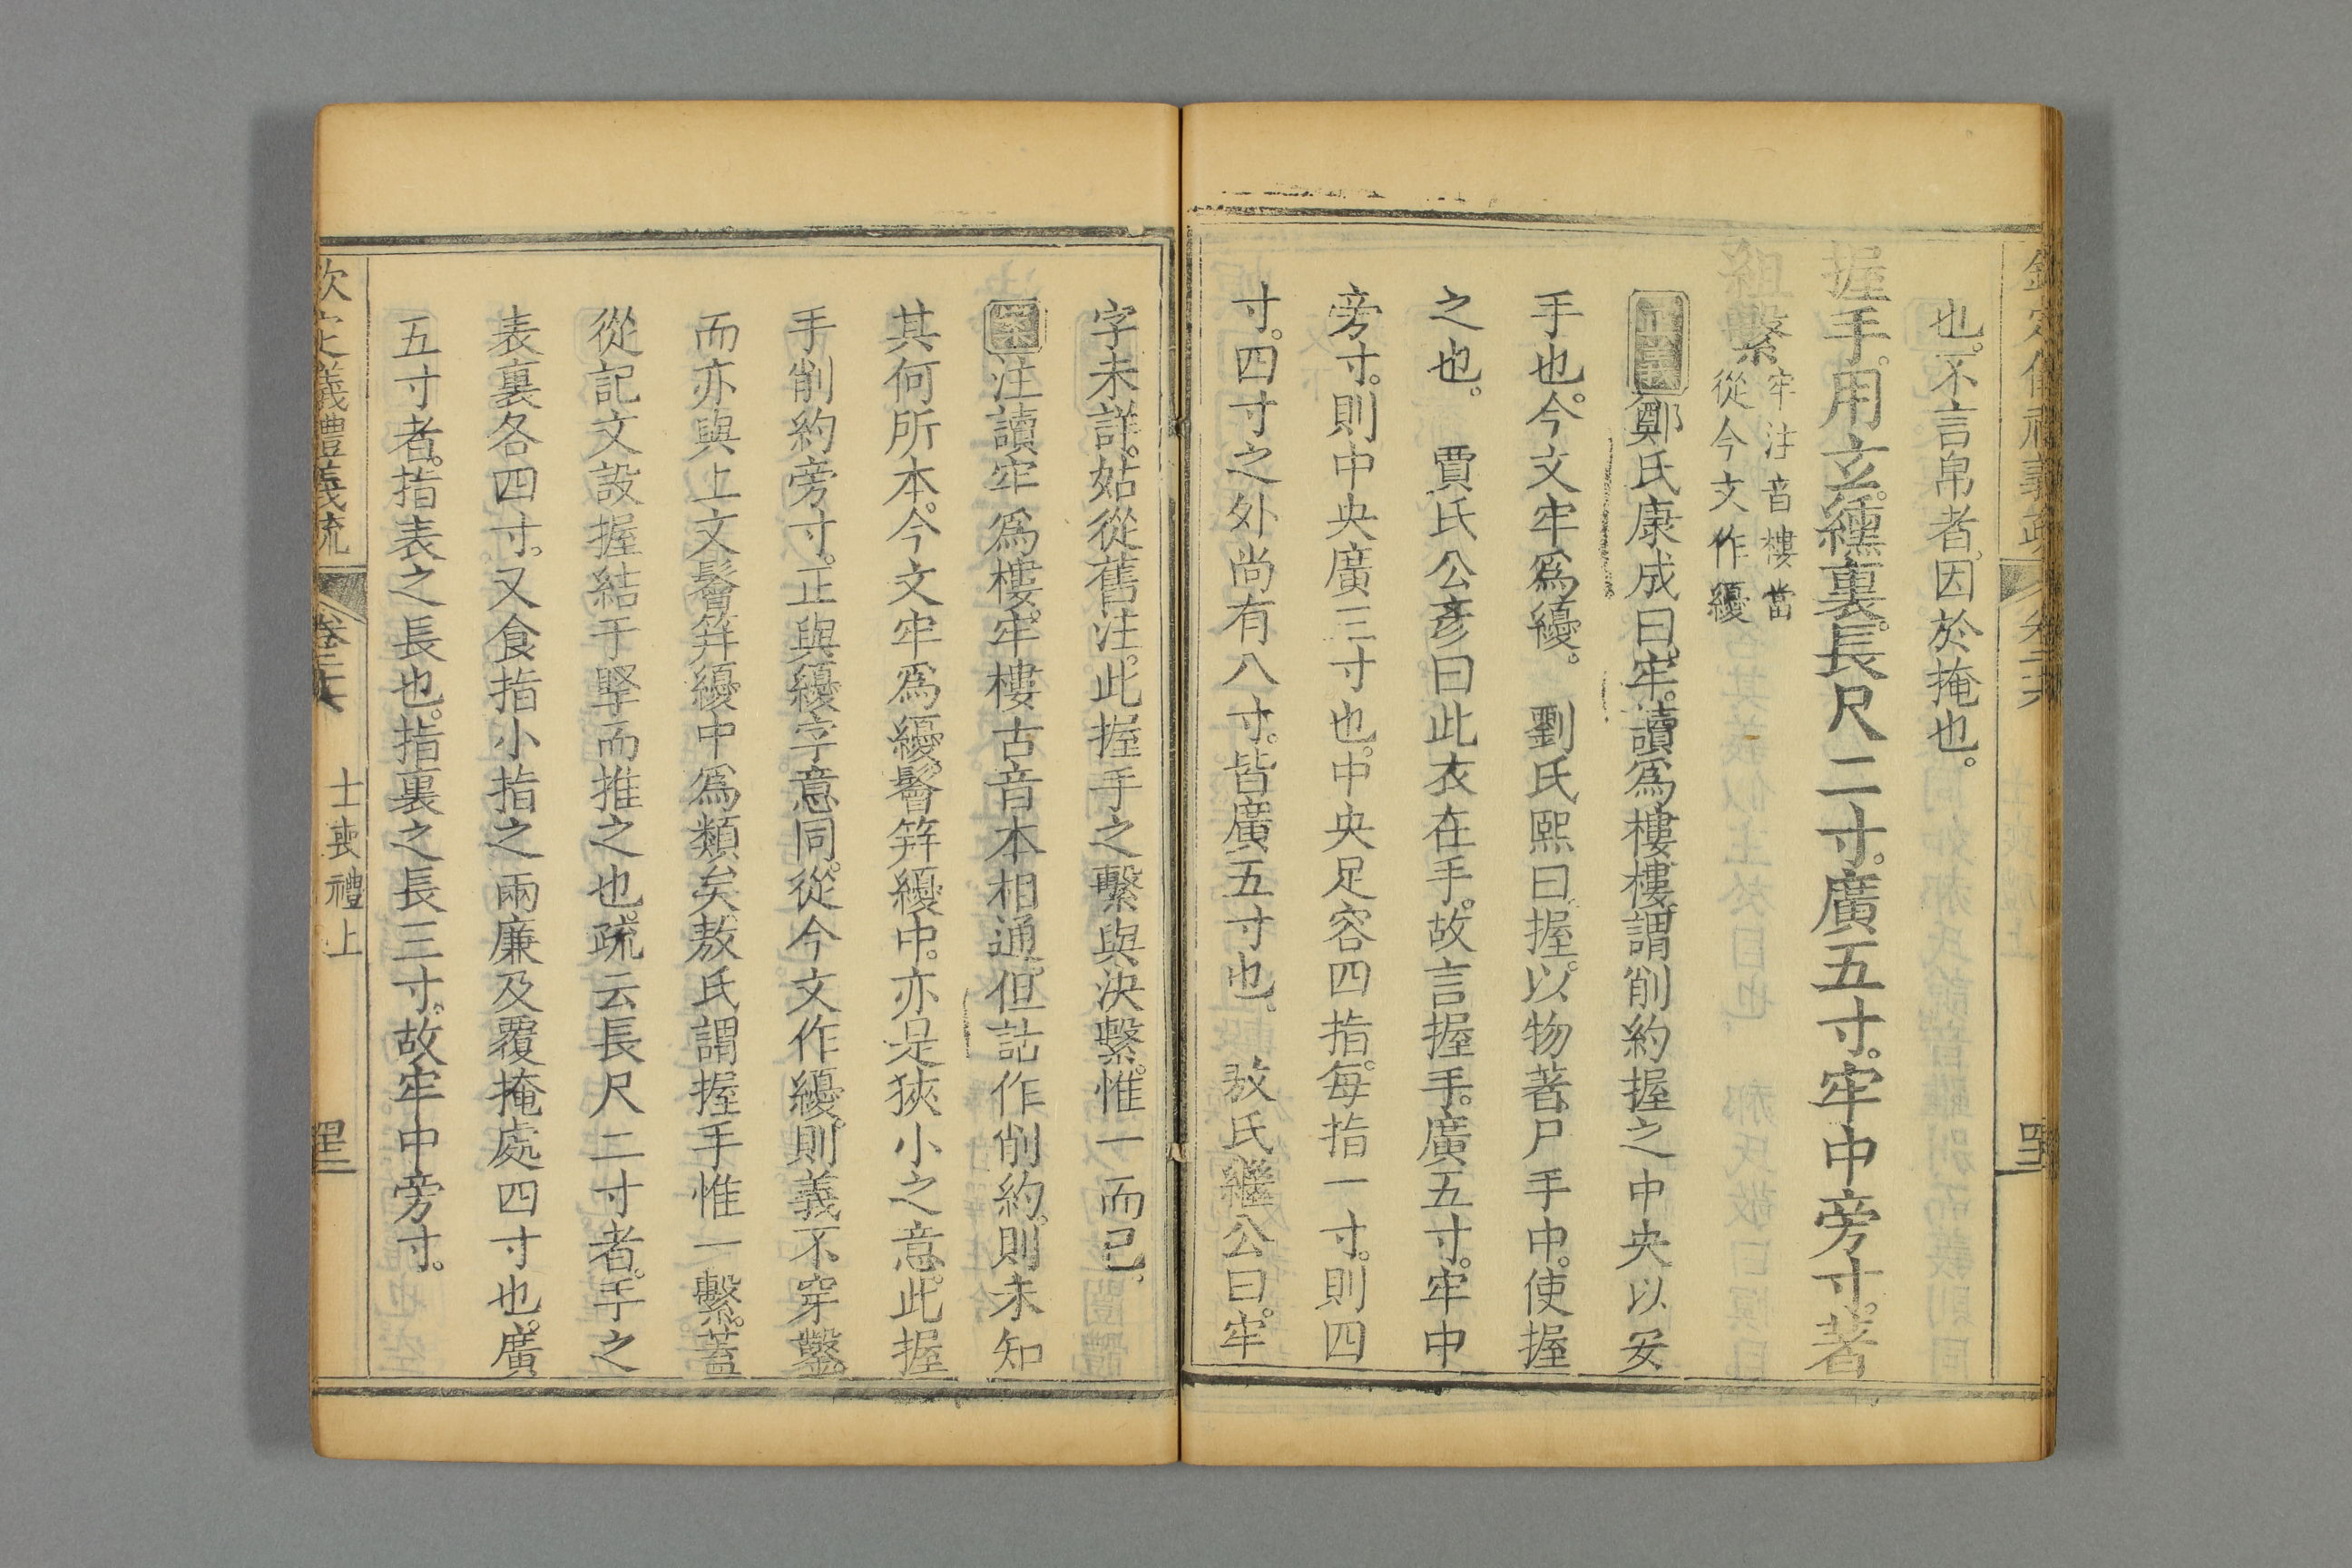 欽定儀禮義疏 卷二十六
也。不言帛者。因於掩也。
握手。用玄。纁裏。長尺二寸。廣五寸。牢中旁寸。著
組繫
牢注音樓當
從今文作纋
正義鄭氏康成曰。牢。讀爲樓。樓。謂削約握之中央以安
手也。今文牢爲纋。 劉氏熙曰。握。以物著尸手中。使握
之也。 賈氏公彥曰。此衣在手。故言握手。廣五寸。牢中
旁寸。則中央廣三寸也。中央足容四指。每指一寸。則四
寸。四寸之外尚有八寸。皆廣五寸也。 敖氏繼公曰。牢
字未詳。姑從舊注。此握手之繫與決繫。惟一而已。
案注讀牢爲樓。牢樓古音本相通。但詁作削約。則未知
其何所本。今文牢爲纋。鬠笄纋中。亦是狹小之意。此握
手削約旁寸。正與纋字意同。從今文作纋。則義不穿鑿。
而亦與上文鬠笄纋中爲類矣。敖氏謂握手惟一繫。蓋
從記文設握結于掔而推之也。疏云長尺二寸者。手之
表裏各四寸。又食指小指之兩廉及覆掩處四寸也。廣
五寸者。指表之長也。指裏之長三寸。故牢中旁寸。
欽定儀禮義疏 卷二十六 士喪禮上